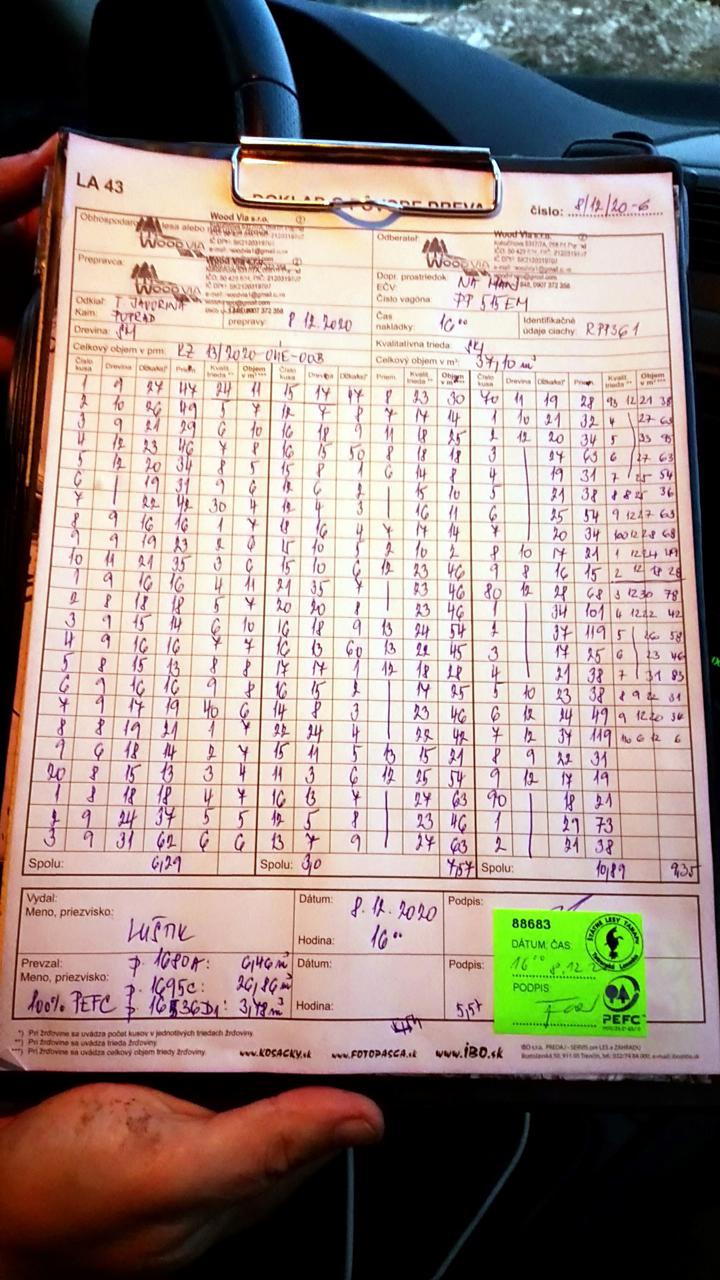 LA 43
DOKLAD O PÔVODE DREVA
číslo: 8/12/20-6
Obhospodar lesa alebo
Wood Via s.r.o.
WOOD VIA
Odberateľ:
Wood Via s.r.o.
WOOD VIA
Prepravca:
WOOD VIA
Dopr. prostriedok
EČV:
Číslo vagóna:
PP 515EM
Odkiaľ: T. JAVORINA
Kam: POPRAD
prepravy: 8.12.2020
Čas nakládky: 16 00
Identifikačné údaje ciachy: RPP361
Drevina: SM
Kvalitatívna trieda:
Celkový objem v prm: RZ 13/2020-04E-003
Celkový objem v m³: 37,10 m³
Číslo kusa Drevina Dĺžka(m)* Priem. Kvalit. trieda ** Objem v m³ ***
1 9 27 47 24 11 15 17 47 8 23 30 70 11 19 28 93 12 21 38
2 10 26 49 5 7 12 7 8 7 17 14 1 10 21 32 4 27 63
3 9 21 29 6 10 16 18 9 11 18 25 2 12 20 34 5 33 95
4 12 23 46 7 8 16 15 50 8 18 18 3 27 63 6 27 63
5 12 20 34 8 5 15 8 1 6 14 8 4 19 31 7 25 54
6 19 31 9 6 12 6 2 15 10 5 21 38 8 8 25 36
7 22 42 30 4 12 4 3 16 11 6 25 54 9 12 27 63
8 9 16 16 1 7 18 16 4 7 17 14 7 20 34 100 12 28 68
9 9 19 23 2 6 15 10 5 2 10 2 8 10 17 21 1 12 24 49
10 11 21 35 3 6 15 10 6 12 23 46 9 8 16 15 2 12 18 28
1 9 16 16 4 11 21 35 7 23 46 80 12 28 68 3 12 30 78
2 8 18 18 5 7 20 20 8 23 46 1 34 101 4 12 22 42
3 9 15 14 6 10 16 18 9 13 24 54 2 37 119 5 26 58
4 9 16 16 7 7 16 13 60 13 22 45 3 17 25 6 23 46
5 8 15 13 8 8 17 17 1 12 18 28 4 21 38 7 31 83
6 9 16 16 9 8 16 15 2 17 25 5 10 23 38 8 9 22 31
7 9 17 19 40 6 14 8 3 23 46 6 12 24 49 9 12 20 34
8 8 19 21 1 7 22 24 4 22 42 7 12 37 119 10 6 12 6
9 6 18 14 2 7 15 11 5 13 15 21 8 9 22 31
20 8 15 13 3 4 11 3 6 12 25 54 9 12 17 19
1 8 18 18 4 7 16 13 7 27 63 90 18 21
2 9 24 37 5 5 12 5 8 23 46 1 29 73
3 9 31 62 6 6 13 7 9 27 63 2 21 38
Spolu: 6,29 Spolu: 3,0 7,57 Spolu: 10,89 9,35
Vydal:
Meno, priezvisko:
Dátum: 8.12.2020
Hodina: 16 00
Podpis:
Prevzal:
Meno, priezvisko:
100% PEFC
p. 1680A: 6,46 m³
p. 1695C: 26,86 m³
3,78 m³
Dátum:
Hodina:
Podpis:
5,57
88683
DÁTUM, ČAS:
16 00 8.12.2
PODPIS
ŠTÁTNE LESY TANAPU
Tatranská Lomnica
PEFC
*) Pri žrďovine sa uvádza počet kusov v jednotlivých triedach žrďoviny.
**) Pri žrďovine sa uvádza trieda žrďoviny.
***) Pri žrďovine sa uvádza celkový objem triedy žrďoviny.
www.KOSACKY.sk www.FOTOPASCA.sk www.iBO.sk
IBO s.r.o. PREDAJ - SERVIS pre LES a ZÁHRADU